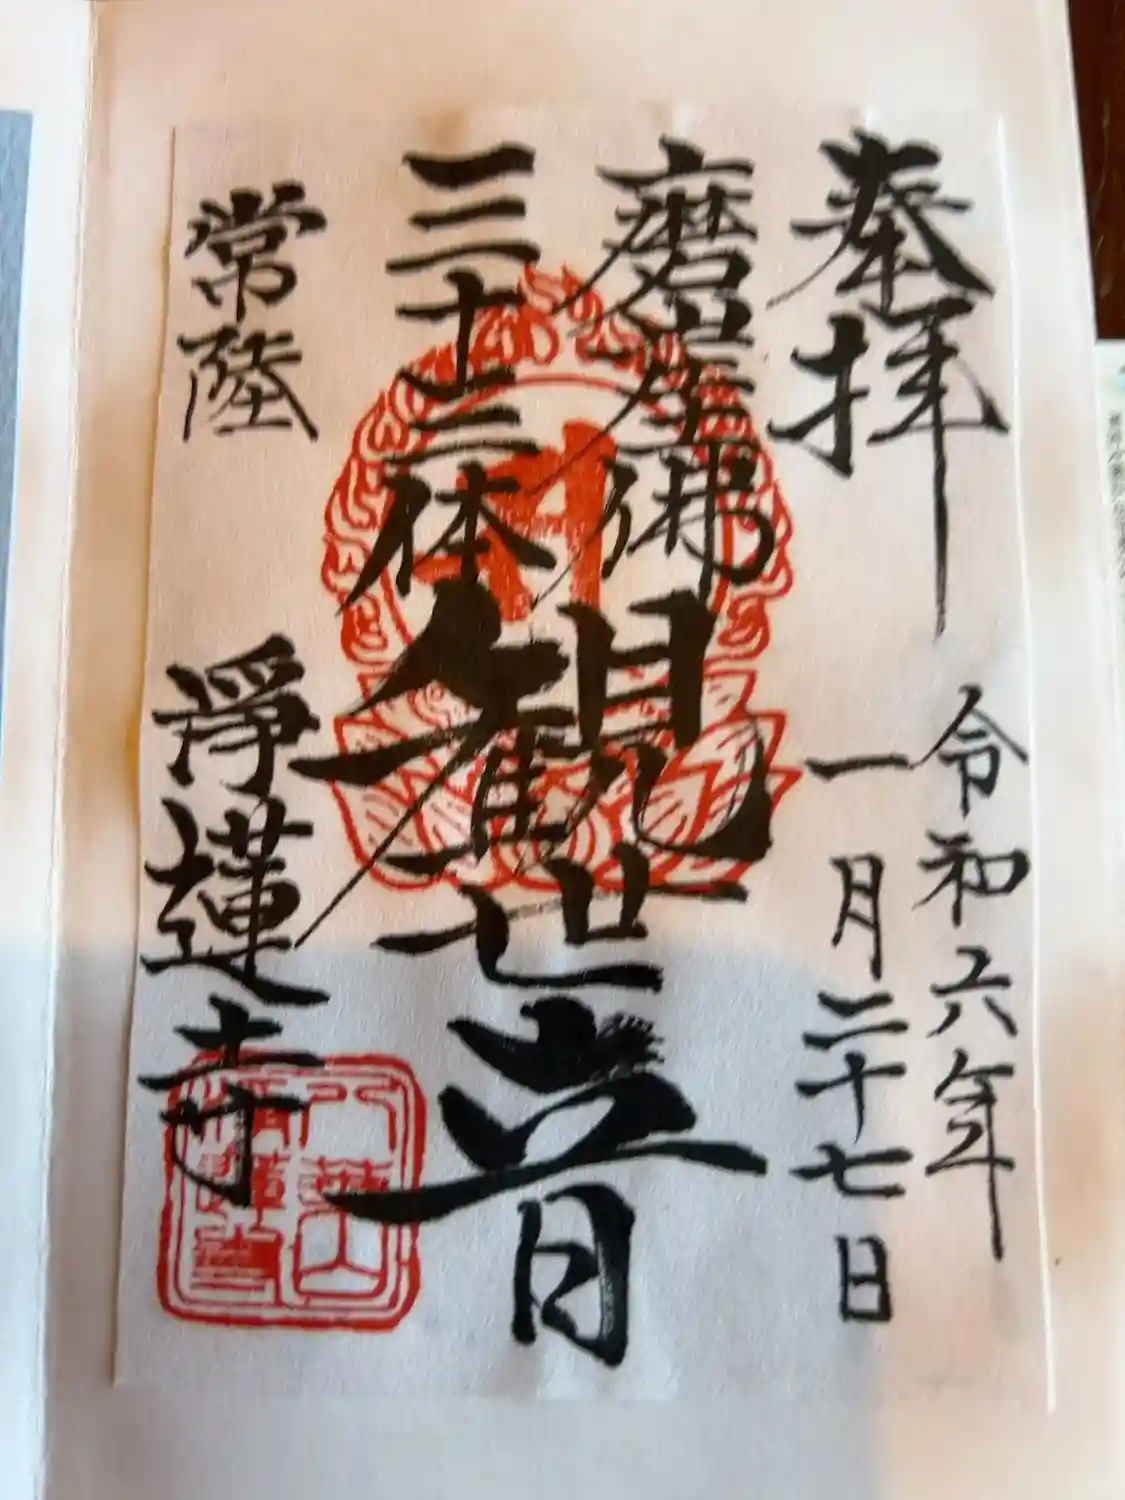 奉拝
令和六年
一月二十七日
磨崖佛
三十三体
観世音
常陸
淨蓮寺